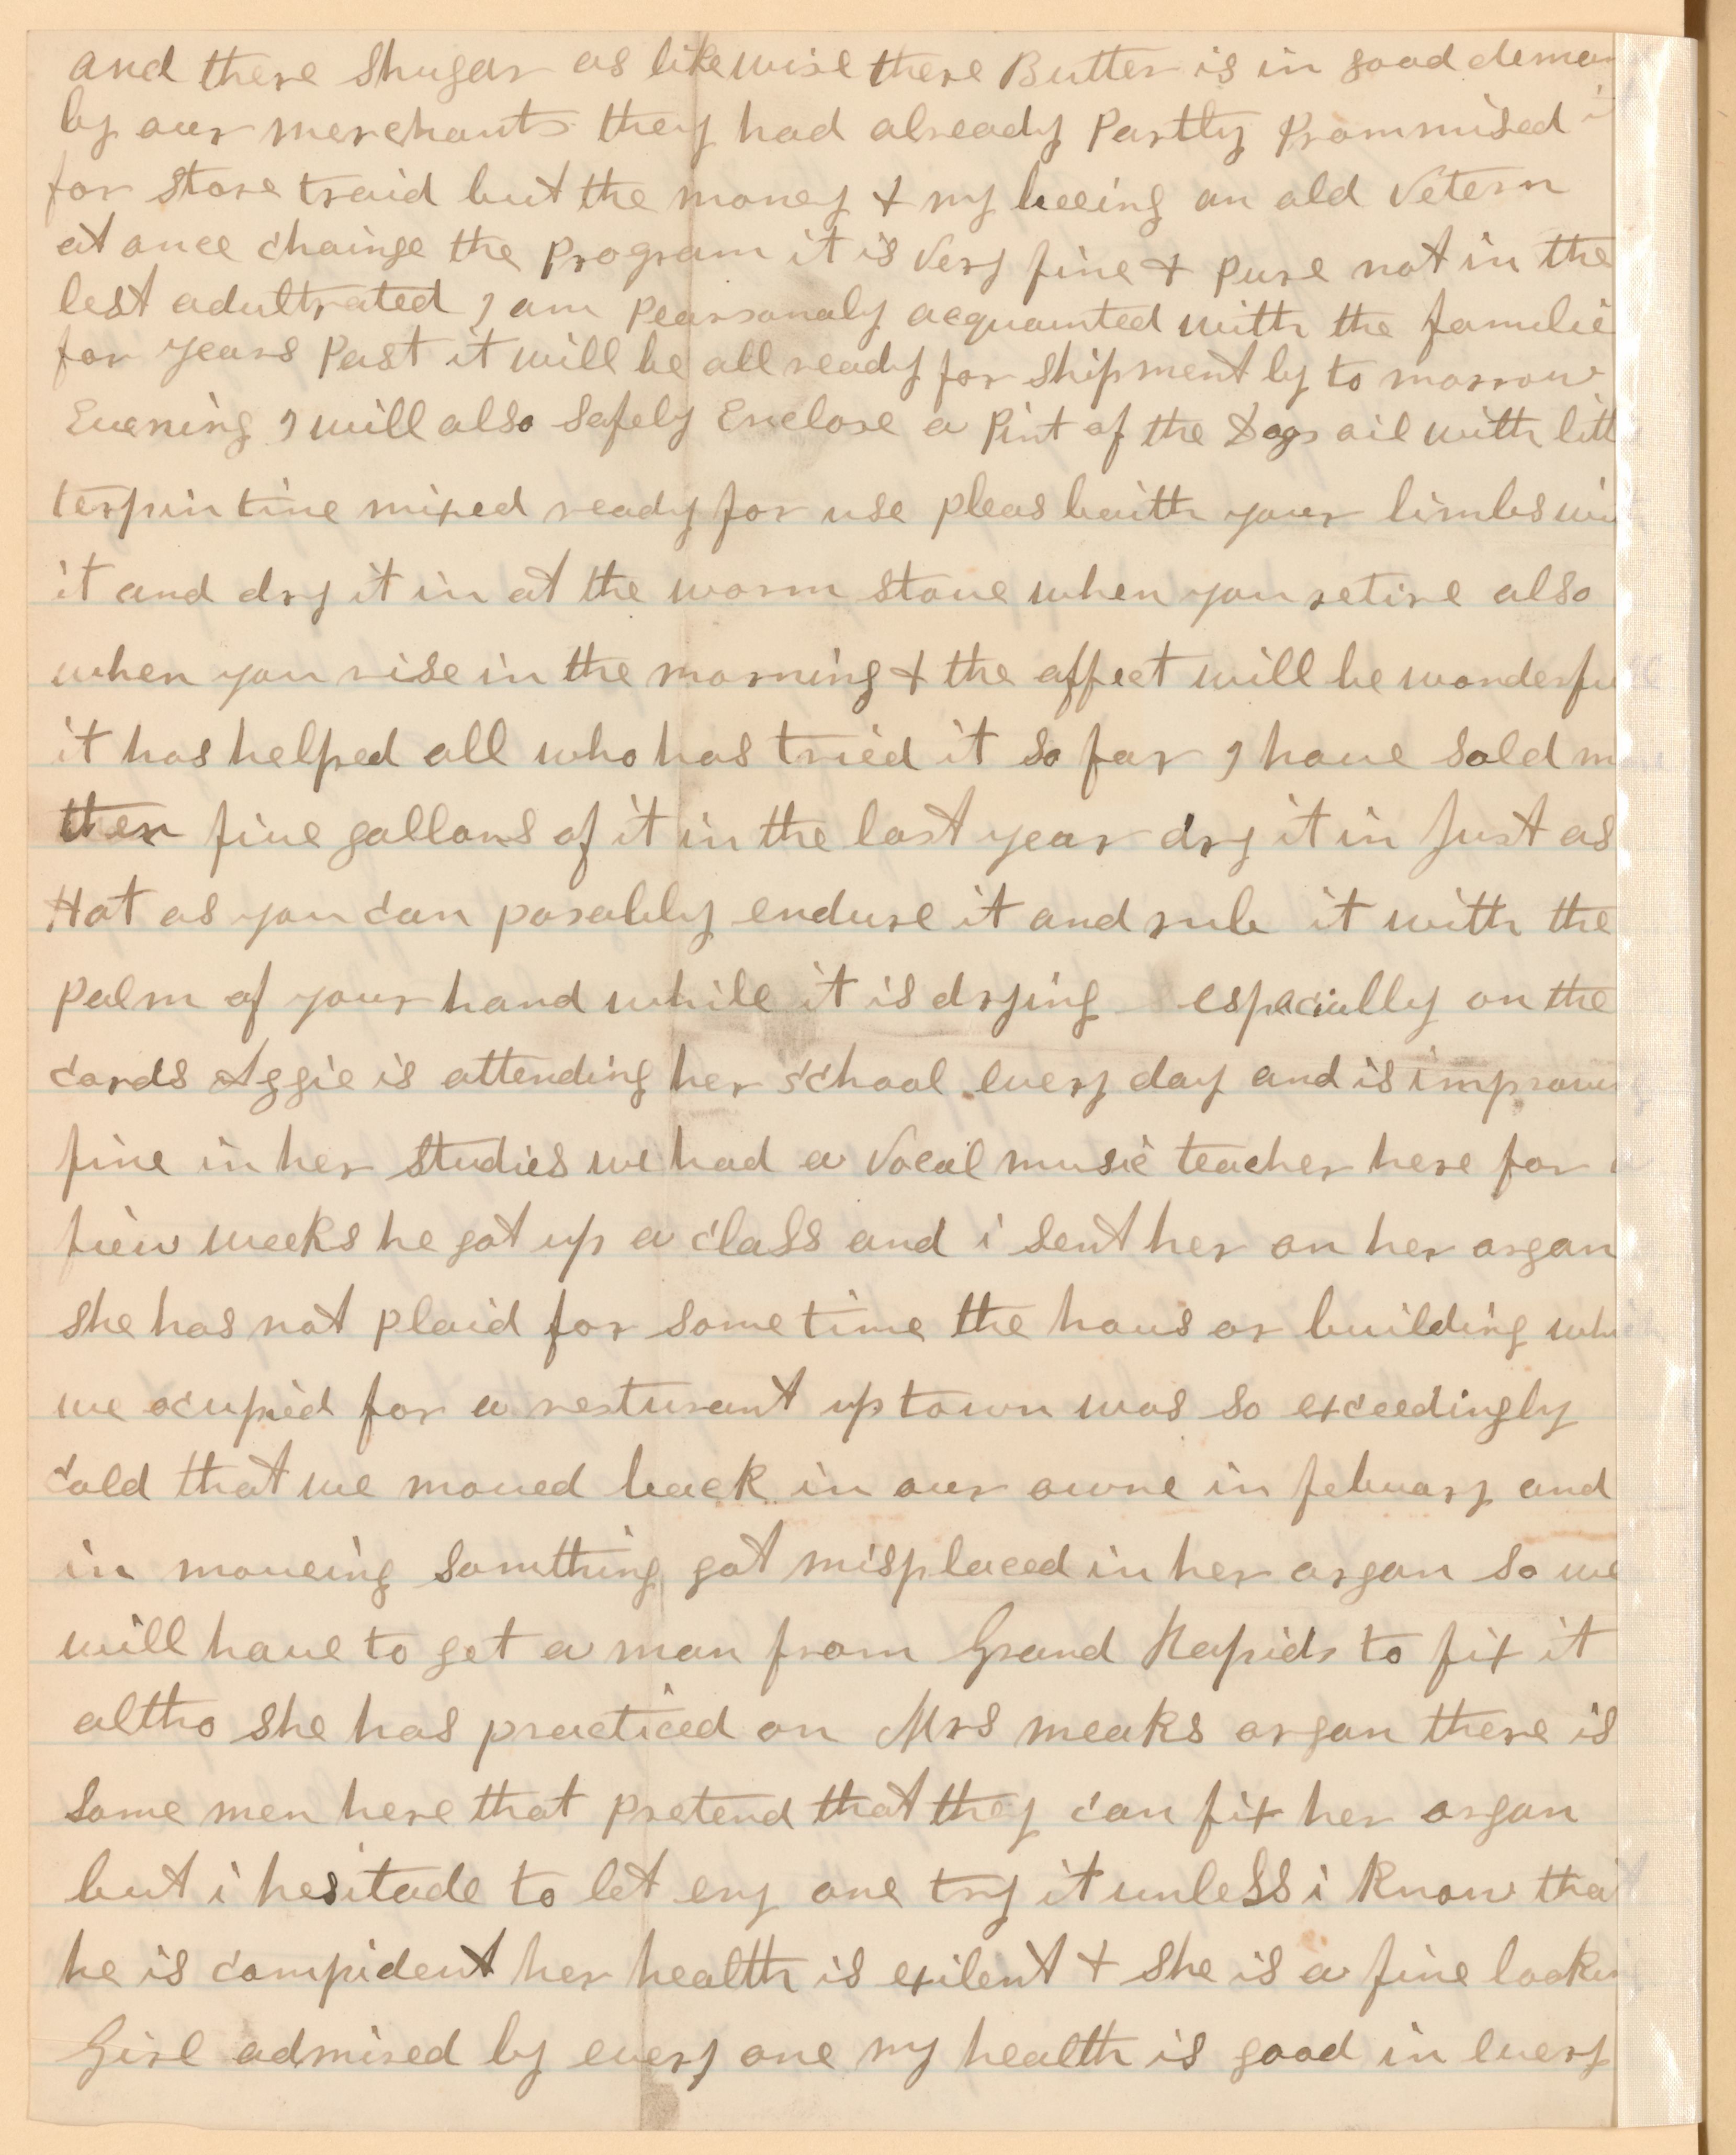 and there Shugar as likewise there Butter is in good deman
by our merchants they had already Partly Prommised it
for store traid but the money & my beeing an old Vetern
at once chainge the Program it is Very fine & pure not in the
lest adultrated I am Pearsonaly acquainted with the familie
for years Past it will be all ready for shipment by to morrow
Evening I will also Safely Enclose a Pint of the Dogs oil with litt
terpintine mixed ready for use pleas baith your limbs wi
it and dry it in at the worm stove when you retire also
when you rise in the morning & the affect will be wonderfu
it has helped all who has tried it so far I have sold m
then five gallons of it in the last year dry it in Just as
Hot as you can posably endure it and rub it with the
palm of your hand while it is drying especially on the
cords Aggie is attending her school every day and is improve
fine in her studies we had a Vocal music teacher here for a
fiew weeks he got up a class and i sent her on her organ
she has not plaid for some time the hous or building whi
we ocupied for a resturant up town was so exceedingly
cold that we moved back in our owne in febuary and
in moveing somthing got misplaced in her organ so we
will have to get a man from Grand Rapids to fix it
altho she has practiced on Mrs meaks organ there is
some men here that pretend that they can fix her organ
but i hesitade to let eny one try it unless i know that
he is compident her health is exilent & she is a fine lookin
Girl admired by every one my health is good in every